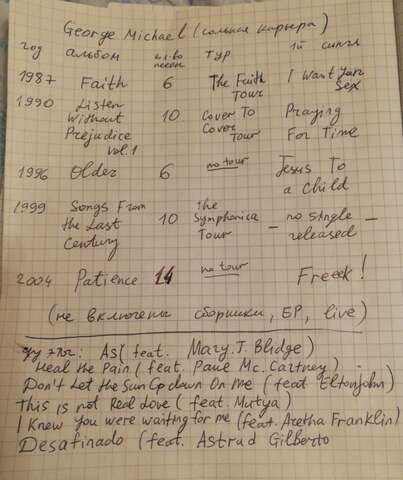 George Michael (сольная карьера)
год альбом кол-во песен тур 1й сингл
1987 Faith 6 The Faith Tour I Want Your Sex
1990 Listen Without Prejudice vol.1 10 Cover To Cover Tour Praying For Time
1996 Older 6 no tour Jesus To a Child
1999 Songs From the Last Century 10 the Symphonica Tour – no single released –
2004 Patience 14 no tour Freeek!
(не включены сборники, EP, live)
As (feat. Mary J. Blidge)
Heal the Pain (feat. Paul Mc. Cartney)
Don't Let the Sun Go down On me (feat Elton John)
This is not Real Love (feat. Mutya)
I Knew you were waiting for me (feat. Aretha Franklin)
Desafinado (feat. Astrud Gilberto